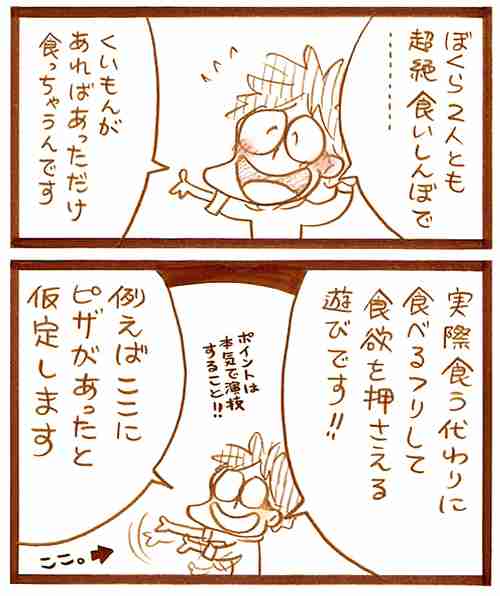 ぼくら2人とも
超絶食いしんぼで
………………
くいもんが
あればあっただけ
食っちゃうんです
実際食う代わりに
食べるフリして
食欲を押さえる
遊びです!!
ポイントは
本気で演技
すること!!
例えばここに
ピザがあったと
仮定します
ここ。➡